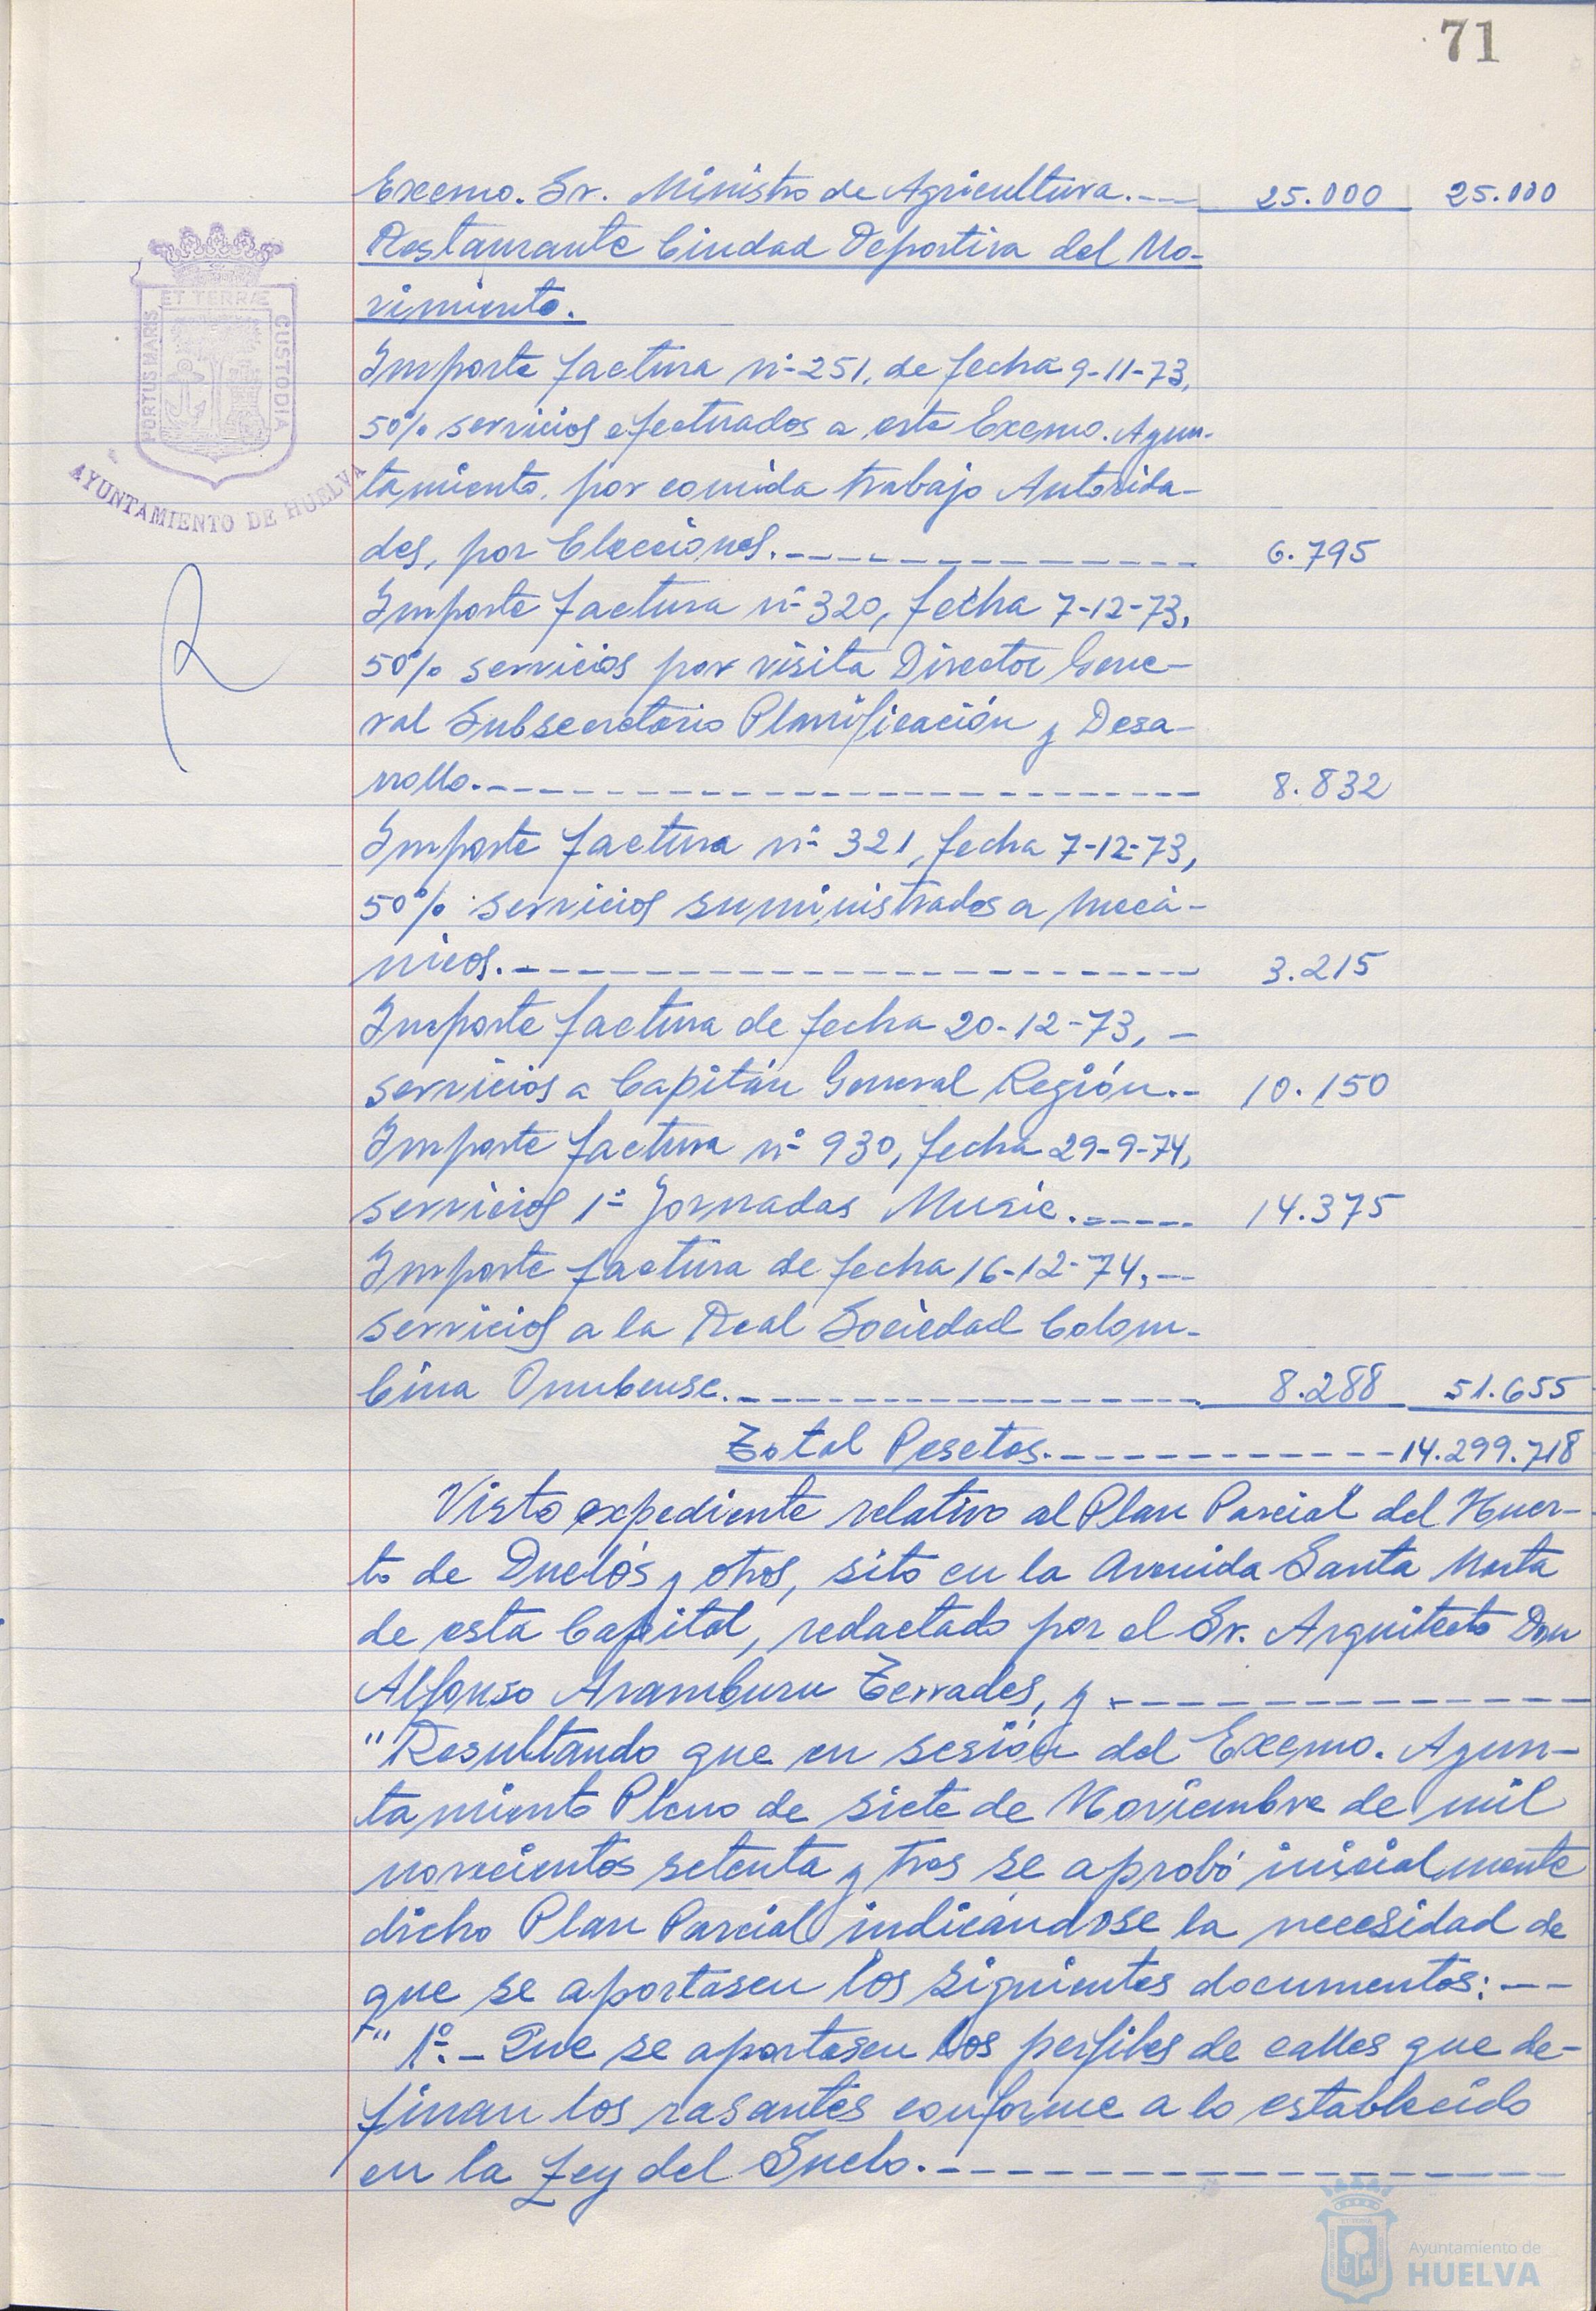 71
Excmo. Sr. Ministro de Agricultura.--- 25.000 25.000
Restaurante Ciudad Deportiva del Mo-
vimiento.
ET TERRÆ
PORTUS MARIS
CUSTODIA
AYUNTAMIENTO DE HUELVA
Importe factura nº 251, de fecha 9-11-73,
50% servicios efectuados a este Excmo. Ayun-
tamiento, por comida trabajo Autorida-
des, por Elecciones.------------- 6.795
Importe factura nº 320, fecha 7-12-73,
50% servicios por visita Director Gene-
ral Subsecretario Planificación y Desa-
rrollo.------------------------- 8.832
Importe factura nº 321, fecha 7-12-73,
50% servicios suministrados a mecá-
nicos.------------------------ 3.215
Importe factura de fecha 20-12-73, -
servicios a Capitán General Región.-- 10.150
Importe factura nº 930, fecha 29-9-74,
servicios 1ª Jornadas Music.------ 14.375
Importe factura de fecha 16-12-74,---
servicios a la Real Sociedad Colom-
bina Onubense.----------------- 8.288 51.655
Total Pesetas.------------14.299.718
Visto expediente relativo al Plan Parcial del Huer-
to de Duclós y otros, sito en la Avenida Santa Marta
de esta Capital, redactado por el Sr. Arquitecto Don
Alfonso Aramburu Terrades, y .--------------
"Resultando que en sesión del Excmo. Ayun-
tamiento Pleno de siete de Noviembre de mil
novecientos setenta y tres se aprobó inicialmente
dicho Plan Parcial indicándose la necesidad de
que se aportasen los siguientes documentos: ---
" 1º.- Que se aportasen los perfiles de calles que de-
finan los rasantes conforme a lo establecido
en la Ley del Suelo.-------------------
Ayuntamiento de
HUELVA